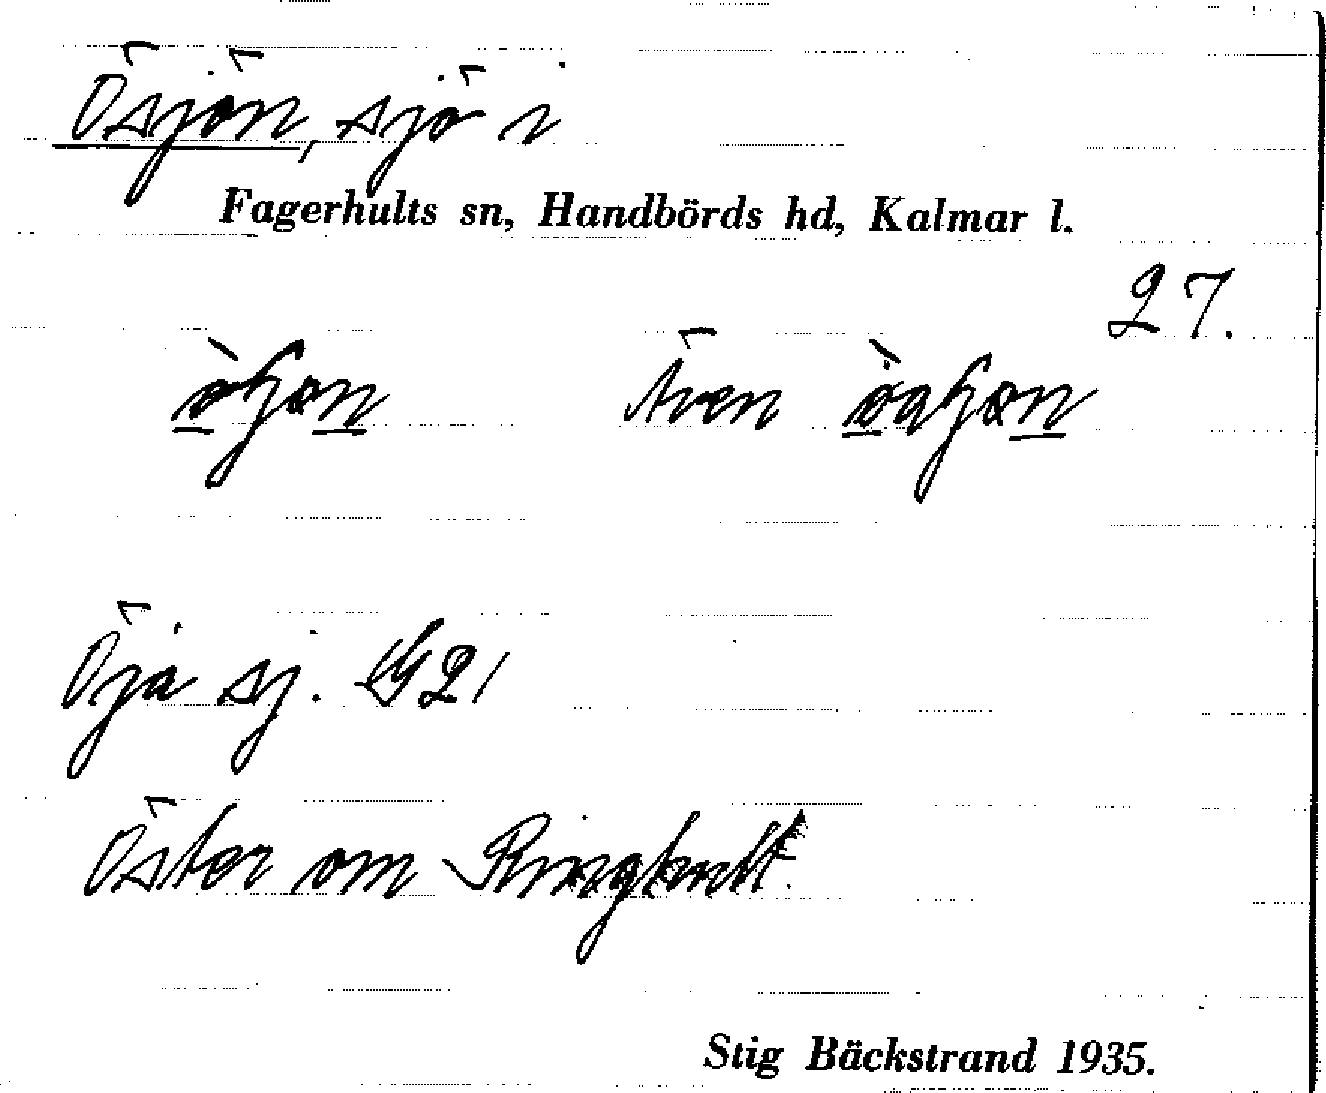 Ösjön, sjö i
Fagerhults sn, Handbörds hd, Kalmar l.
27.
Även
Öja sj. G21
Öster om Ringhult.
Stig Bäckstrand 1935.